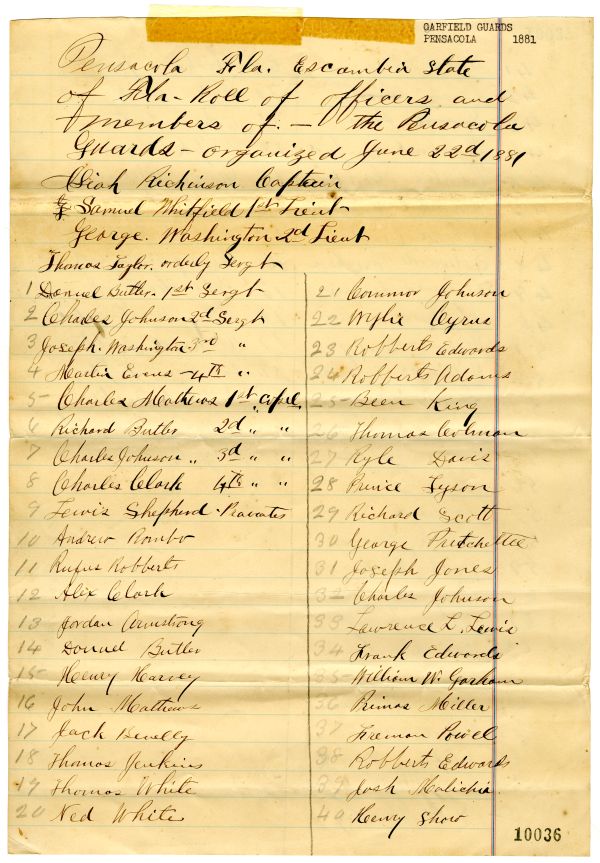 GARFIELD GUARDS
PENSACOLA 1881
Pensacola Fla. Escambia State
of Fla - Roll of officers and
members of. - the Pensacola
Guards - organized June 22d 1881
Richinson Captain
Samuel Whitfield 1st Lieut
George. Washington 2d Lieut
Thomas Taylor. orderly Sergt
1 Danuel Butler. 1st Sergt
2 Charles Johnson 2d Sergt
3 Joseph. Washington 3rd "
4 Martin Evens - 4th "
5 Charles Mathews 1st Corpl
6 Richard Butler 2d " "
7 Charles Johnson " 3d " "
8 Charles Clark 4th " "
9 Lewis Shepherd - Peavates
10 Andrew Rombo
11 Rufus Robberts
12 Alix Clark
13 Jordan Armstong
14 Donuel Butler
15 Henry Harvey
16 John Mathews
17 Jack
18 Thomas Jenkins
19 Thomas White
20 Ned White
21 Connor Johnson
22 Wylie Cyrus
23 Robberts Edwards
24 Robberts Adams
25 Been King
26 Thomas Colman
27 Kyle Davis
28 Prince Tyson
29 Richard Scott
30 George Pritchettee
31 Joseph Jones
32 Charles Johnson
33 Lawrence L. Lewis
34 Frank Edwards
35 William W. Gorham
36 Primas Miller
37 Freeman Powell
38 Robberts Edwards
39 Josh Malichia
40 Henry Show
10036